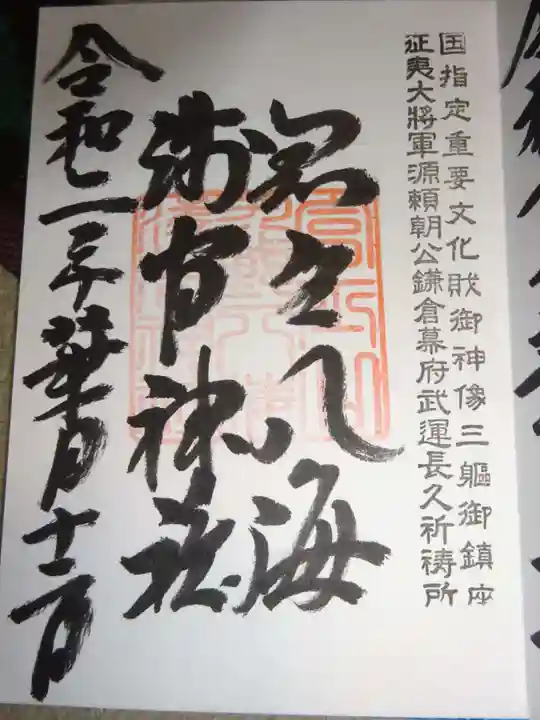 国指定重要文化財御神像三軀御鎮座
征夷大將軍源頼朝公鎌倉幕府武運長久祈祷所
八海
浅間神社
令和二年葉月十一日